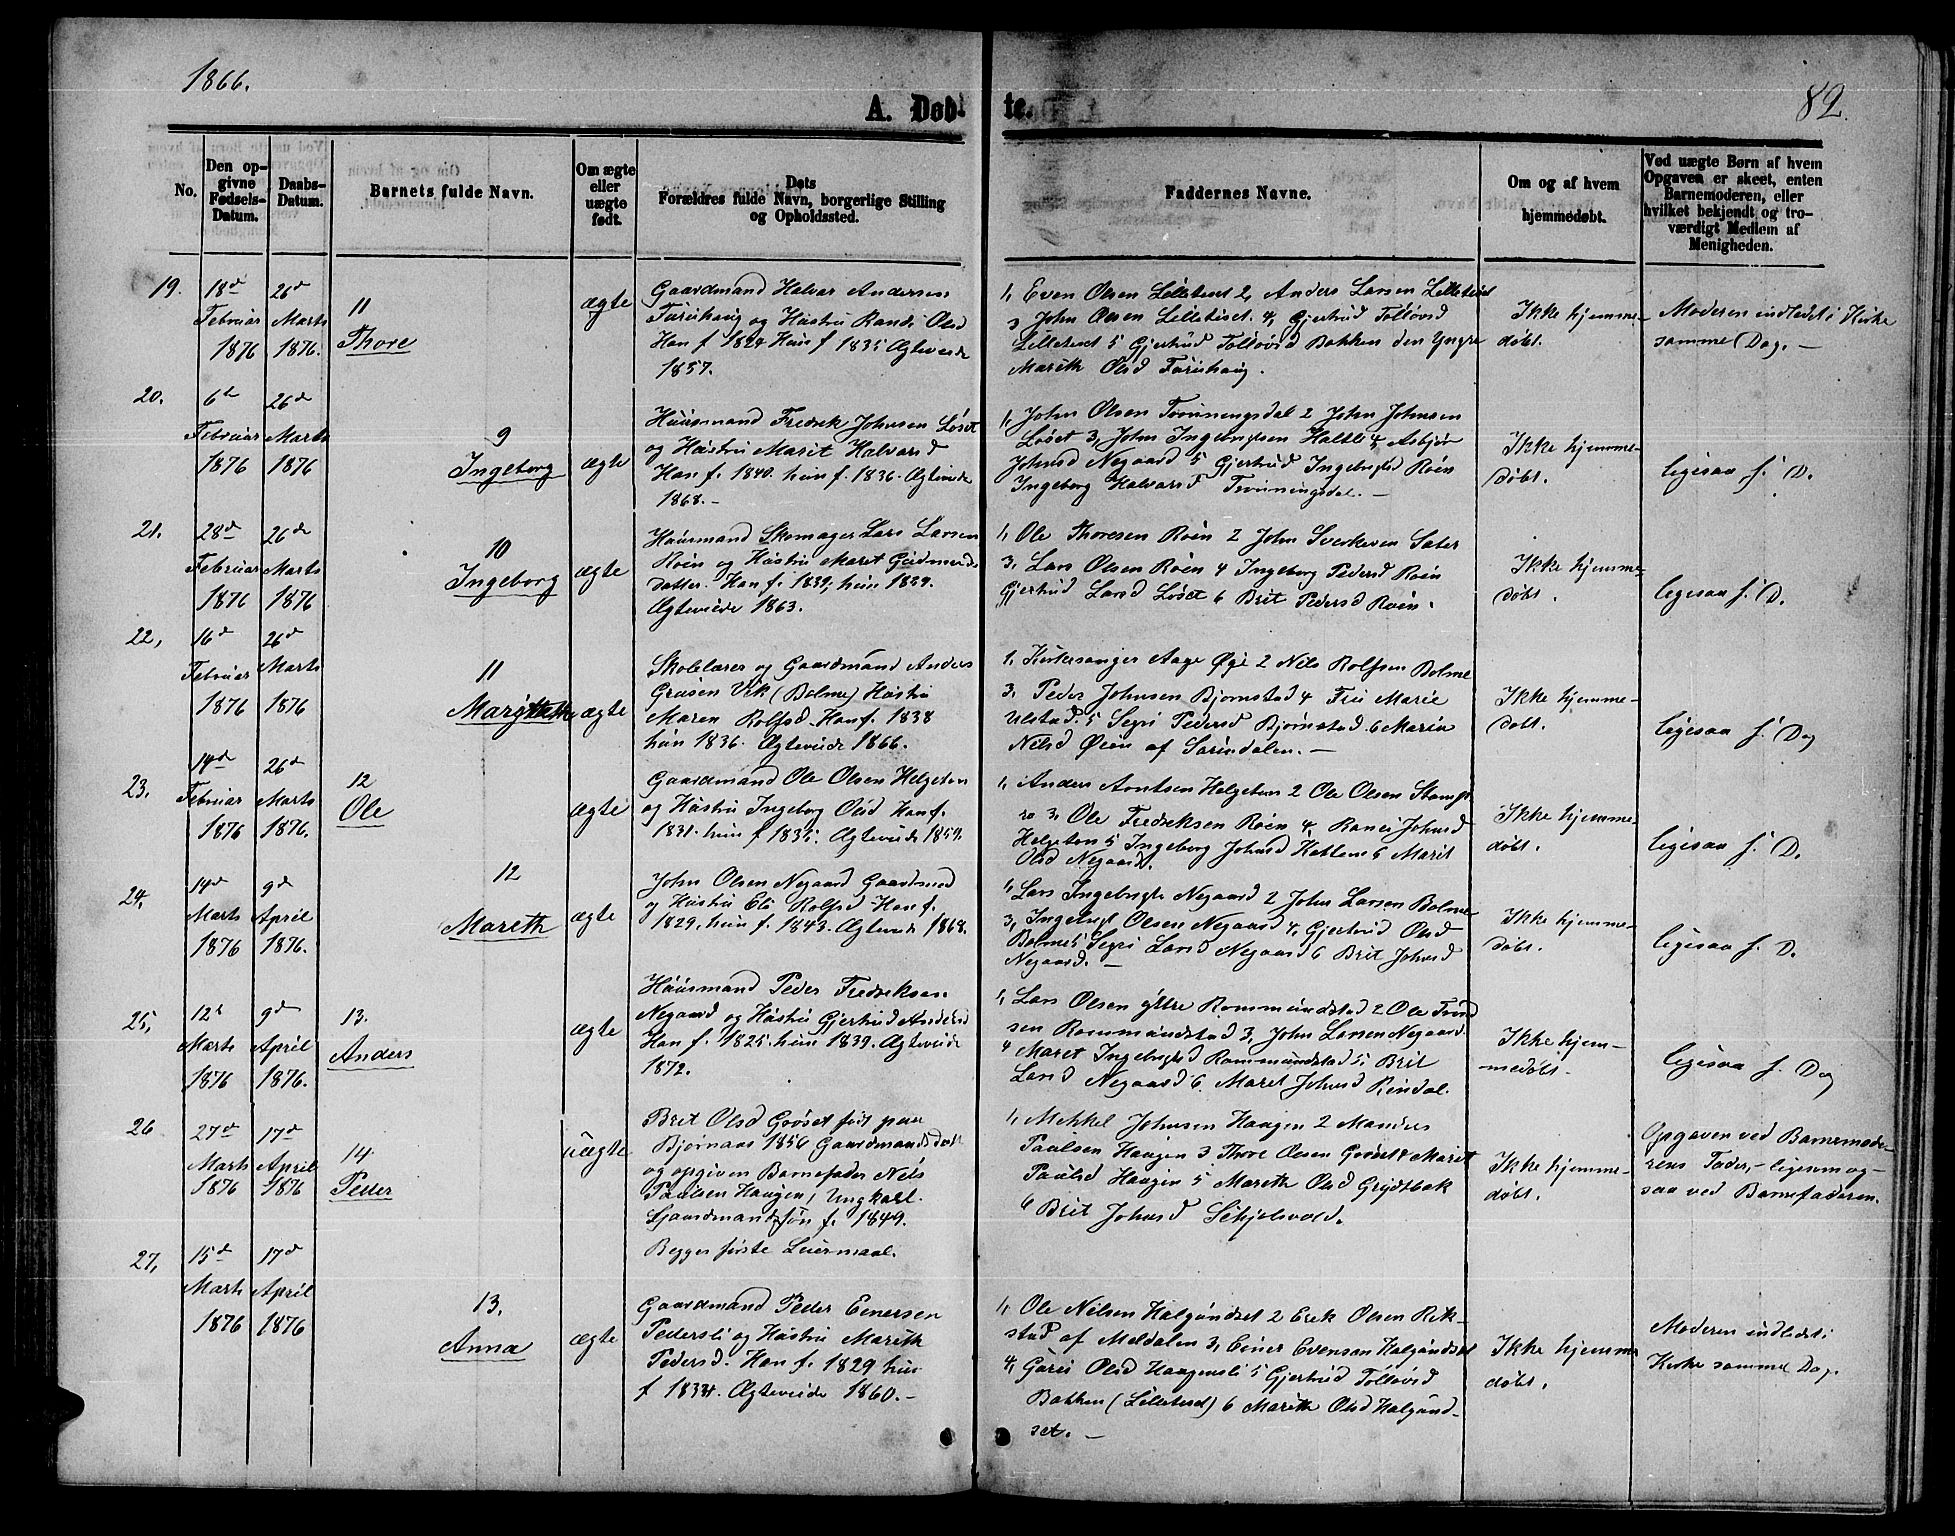 1866.
82.
A. Døb-
te.
No.
Den op-
givne
Fødsels-
Datum.
Daabs-
Datum.
Barnets fulde Navn.
Om ægte
eller
uægte
født.
Dets
Forældres fulde Navn, borgerlige Stilling
og Opholdssted.
Faddernes Navne.
Om og af hvem
hjemmedøbt.
Ved uægte Børn af hvem
Opgaven er skeet, enten
Barnemoderen, eller
hvilket bekjendt og tro-
værdigt Medlem af
Menigheden.
19.
18d
Februar
1876
26d
Marts
1876.
11
Thore
ægte
Gaardmand Halvar Andersen
Furuhaug og Hustru Randi Olsd
Han f 1824 Hun f 1835 Ægteviede
1857.
1, Even Olsen Lilletiset 2, Anders Larsen Lilletiset
3 John Olsen Lilletiset. 4, Gjertrud Tollovsd
Lilletiset 5 Gjertrud Tollovsd Bakken den Yngre
Marith Olsd Furuhaug.
Ikke hjemme-
døbt.
Moderen indledet i Kirke
samme Dag. —
20.
6te
Februar
1876
26d
Marts
1876
9
Ingeborg
ægte
Huusmand Fredrik Johnsen Løset
og Hustru Marit Halvarsd
Han f. 1840. hun f. 1836. Ægteviede
1868. —
1, John Olsen Tronningsdal 2 John Johnsen
Løset 3, John Ingebrigtsen Haltli 4, Asbjør
Johnsd Negaard 5 Gjertrud Ingebrigtsd Roen
Ingeborg Halvarsd Tronningsdal. —
Ikke hjemme-
døbt.
ligesaa s. D.
21.
28d
Februar
1876
26de
Marts
1876
10
Ingeborg
ægte
Huusmand Skomager Lars Larsen
Roen og Hustru Maret Gudmunds
datter. Han f. 1839, hun 1839.
Ægteviede 1863.
1, Ole Thoresen Roen 2 John Sverkesen Sæter
3, Lars Olsen Roen 4 Ingeborg Pedersd Roen
Gjertrud Larsd Løset 6 Brit Pedersd Roen.
Ikke hjemme-
døbt.
ligesaa s. D.
22,
16d
Februar
1876
26d
Marts
1876
11
ægte
Skolelærer og Gaardmand Anders
Vik (Bolme) Hustru
Maren Rolfsd. Han f. 1838
hun 1836. Ægteviede 1866.
1, Kirkesanger Aage Øye 2 Nils Rolfsen Bolme
3, Peder Johnsen Bjørnstad 4 Fru Marie
Ulstad. 5 Segri Pedersd Bjørnstad 6 Maren
Nilsd Øien af Surendalen. —
Ikke hjemme-
døbt.
ligesaa s. Dag
23.
14d
Februar
1876
26d
Marts
1876.
12
Ole
ægte
Gaardmand Ole Olsen Helgeton
og Hustru Ingeborg Olsd Han f.
1831. hun f 1835. Ægteviede 1859.
1, Anders Arntsen Helgeton 2 Ole Olsen
3, Ole Fredriksen Roen 4, Ranei Johnsd
Helgeton 5 Ingeborg Johnsd Kattem 6 Marit
Olsd Negaard.
Ikke hjemme-
døbt.
ligesaa s. D.
24.
14d
Marts
1876
9d
April
1876.
12
Mareth
ægte
John Olsen Negaard Gaardmand
og Hustru Eli Rolfsd Han f.
1829, hun f. 1843. Ægteviede 1868.
1, Lars Ingebrigts Negaard 2 John Larsen Bolme
3, Ingebrigt Olsen Negaard 4, Gjertrud Olsd
Bolme 5 Segri Larsd Negaard 6 Brit Johnsd
Negaard. —
Ikke hjemme-
døbt.
ligesaa s. D.
25,
12t
Marts
1876
9d
April
1876.
13.
Anders
ægte
Huusmand Peder Fredriksen
Negaard og Hustru Gjertrud Andersd
Han f. 1825. hun 1839. Ægteviede
1872.
1, Lars Olsen yttre Rommundstad 2 Ole Trond
sen Rommundstad 3, John Larsen Negaard
4 Maret Ingebrigtsd Rommundstad 5. Brit
Larsd Negaard 6. Maret Johnsd Rindal.
Ikke hjem-
medøbt.
ligesaa s. Dag
26
27d
Marts
1876
17d
April
1876
14.
Peder
uægte
Brit Olsd Grøset født paa
Bjørnaas 1856 Gaardmandsdatt
og opgiven Barnefader Nils
Paulsen Haugen, Ungkarl.
Gaardmandssøn f. 1849.
Begges første Leiermaal.
1, Mekkel Johnsen Haugen 2 Manders
Paulsen Haugen 3 Thore Olsen Grøset 4 Marit
Paulsd Haugen 5 Mareth Olsd Grytbak
6 Brit Johnsd
Ikke hjemme-
døbt.
Opgaven ved Barnemode-
rens Fader, — ligesmog-
saa ved Barnefaderen.
27,
15d
Marts
1876
17d
April
1876
13.
Anna
ægte
Gaardmand Peder Eenersen
Pedersli og Hustru Marith
Pedersd. Han f. 1829 hun
f 1834. Ægteviede 1860. —
1, Ole Nilsen Halgundset 2 Erik Olsen Rik-
stad af Meldalen 3, Einer Evensen Halgundset
4, Guri Olsd Haugensli 5 Gjertrud Tollovsd
Bakken (Lilletiset) 6 Marith Olsd Halgund-
set. —
Ikke hjemme
døbt.
Moderen indledet i
Kirke samme Dag.